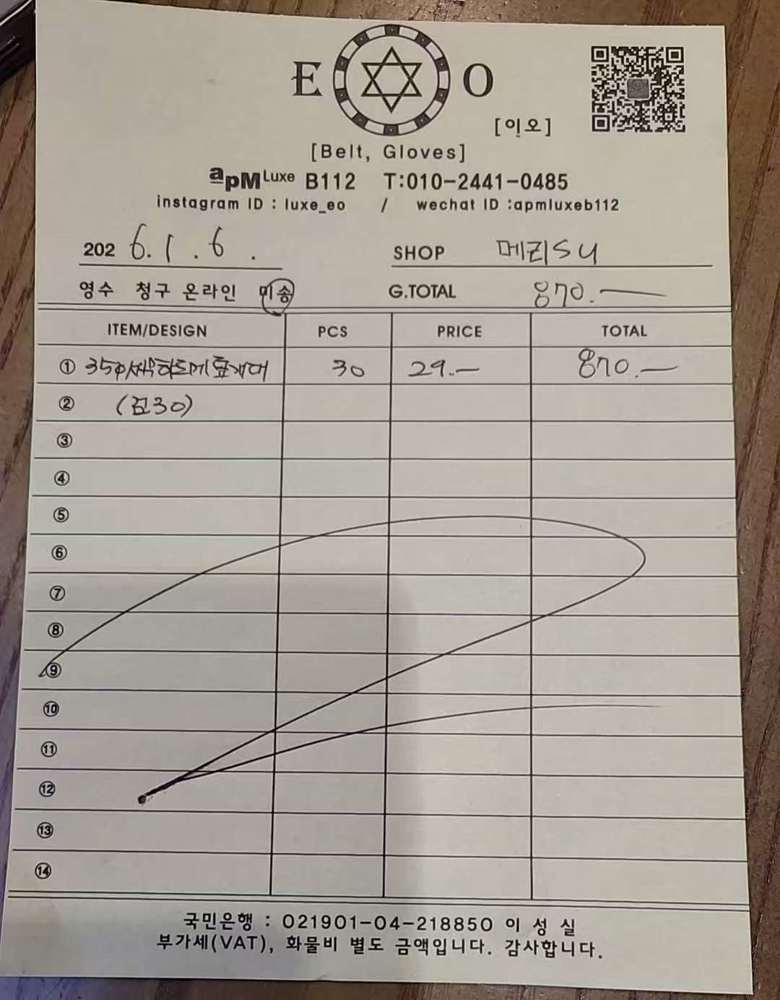 E O
[이오]
[Belt, Gloves]
apM Luxe B112 T:010-2441-0485
instagram ID : luxe_eo / wechat ID :apmluxeb112
202 6.1.6. SHOP 메리SU
영수 청구 온라인 미송 G.TOTAL 870.—
ITEM/DESIGN PCS PRICE TOTAL
① 35 30 29.— 870.—
② (검30)
③
④
⑤
⑥
⑦
⑧
⑨
⑩
⑪
⑫
⑬
⑭
국민은행 : 021901-04-218850 이 성 실
부가세(VAT), 화물비 별도 금액입니다. 감사합니다.